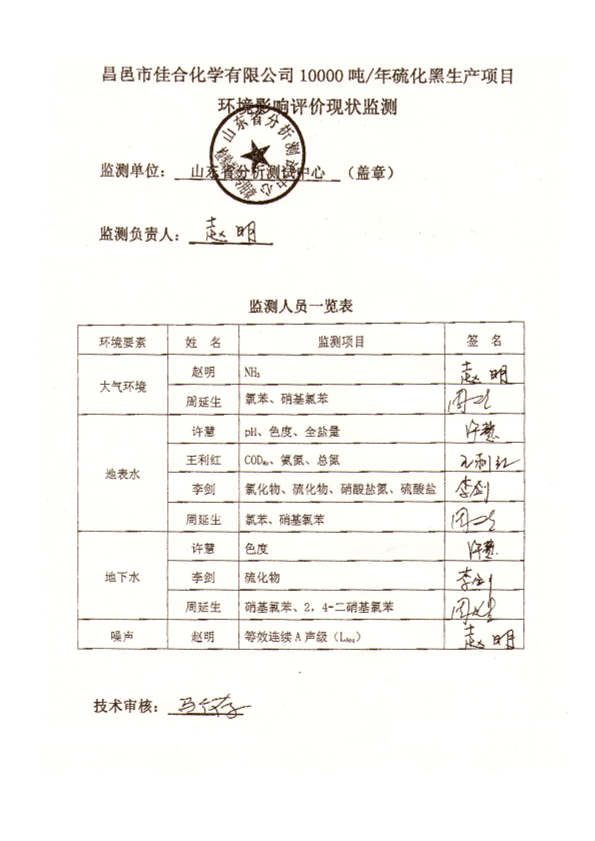 昌邑市佳合化学有限公司10000吨/年硫化黑生产项目
环境影响评价现状监测
监测单位： 山东省分析测试中心 （盖章）
山东省分析测试中心
监测负责人： 赵明
监测人员一览表
环境要素 姓 名 监测项目 签 名
大气环境 赵明 NH₃ 赵明
周延生 氯苯、硝基氯苯
地表水 许慧 pH、色度、全盐量 许慧
王利红 COD、氨氮、总氮 王利红
李剑 氯化物、硫化物、硝酸盐氮、硫酸盐 李剑
周延生 氯苯、硝基氯苯
地下水 许慧 色度 许慧
李剑 硫化物 李剑
周延生 硝基氯苯、2，4-二硝基氯苯 周延生
噪声 赵明 等效连续A声级（Lₐₑq） 赵明
技术审核：